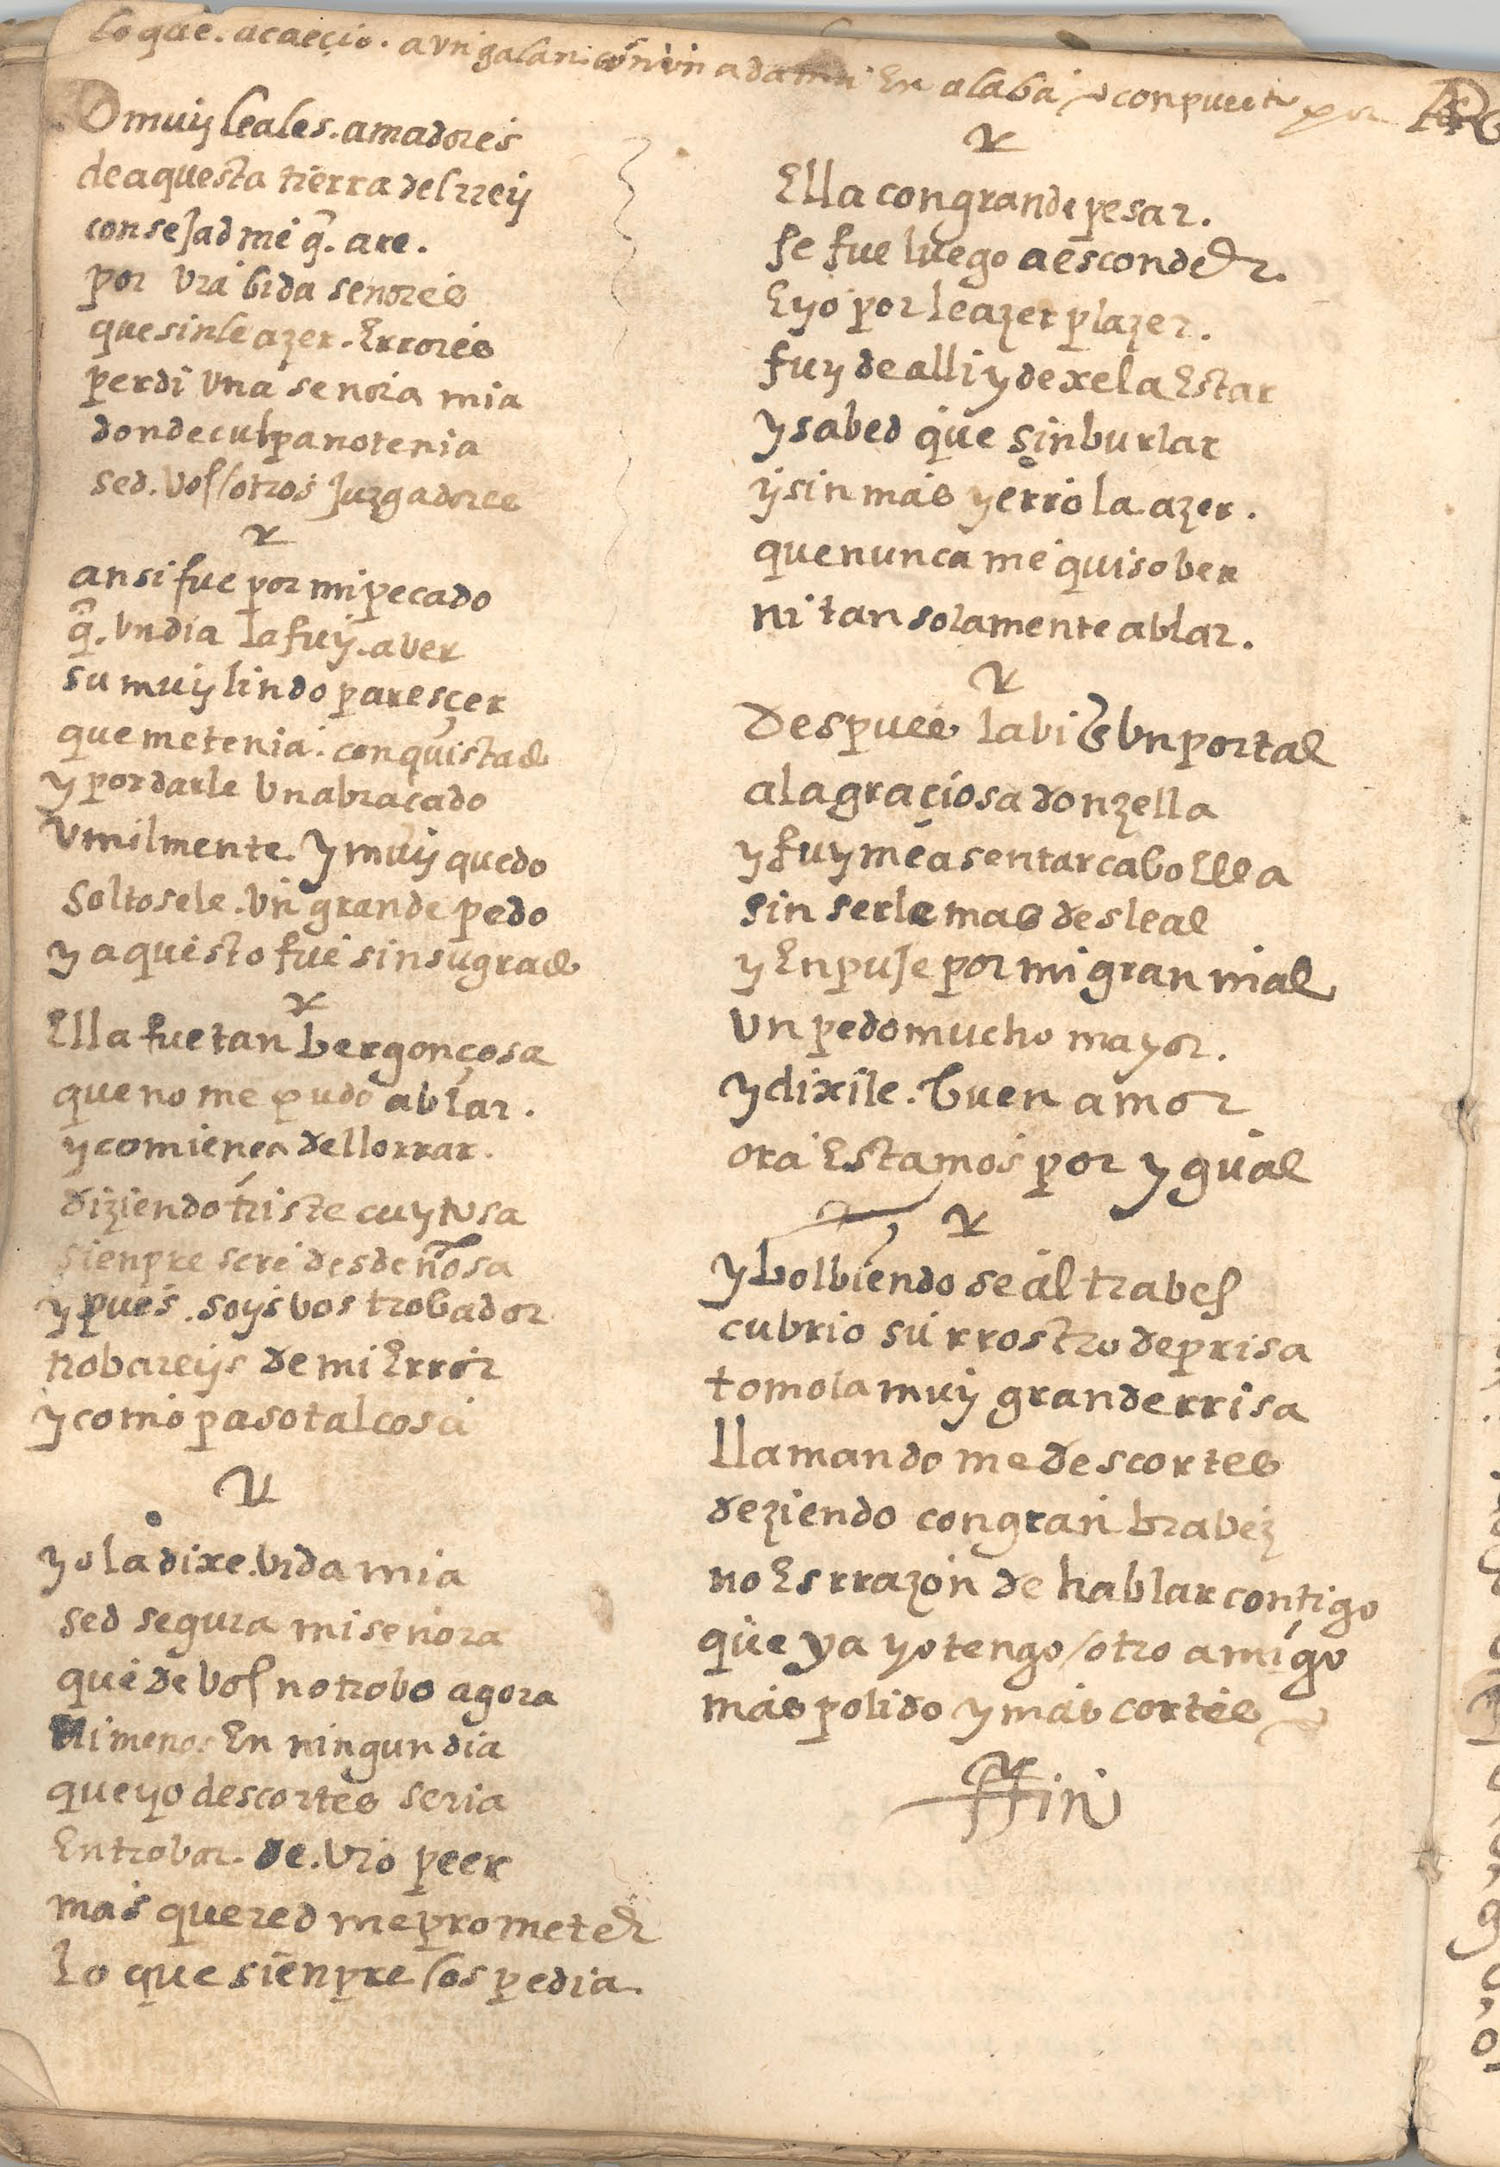 lo que. acaeçio. a vn galan. con vn a dama En alaba y conpuesto por
O muy leales. amadores
de aquesta tierra del rrey
consejad me q̃. are.
por vra bida senores
que sin le azer. Errores
perdi vna senora mia
donde culpa no tenia
sed. vosotros Juzgadores
ansi fue por mi pecado
q̃. vn dia la fuy. a ver
su muy lindo paresçer
que me tenia. conquistado
y por darle vn abraçado
vmilmente. y muy quedo
soltosele. vn grande pedo
y aquesto fue sin su grado
Ella fue tan bergonçosa
que no me pudo ablar.
y comiença dellorrar.
diziendo triste cuytosa
sienpre sere desdeñosa
y pues. soys vos trobador
trobareys de mi Error
y como paso tal cosa
yo la dixe. vida mia
sed segura mi senora
que de vos no trobo agora
Ni menos En ningun dia
que yo descortes seria
En trobar. de. vro peer
mas quered me prometer
lo que sienpre os pedia.
Ella con grande pesar.
se fue luego a esconder.
E yo por le azer plazer.
fuy de alli y dexela Estar
y sabed que sin burlar
y sin mas yerro la azer.
que nunca me quiso ber
ni tan solamente ablar.
despues la bi En vn portal
a la graçiosa donzella
y fuy me a sentar cabo Ella
sin serle mas desleal
y Enpuje por mi gran mal
vn pedo mucho mayor.
y dixile. buen amor
ora Estamos por ygual
y bolbiendo se al trabes
cubrio su rrostro de prisa
tomola muy grande rrisa
llamando me descortes
deziendo con gran brabez
no Es rrazon de hablar contigo
que ya yo tengo otro amigo
mas polido y mas cortes
ffin